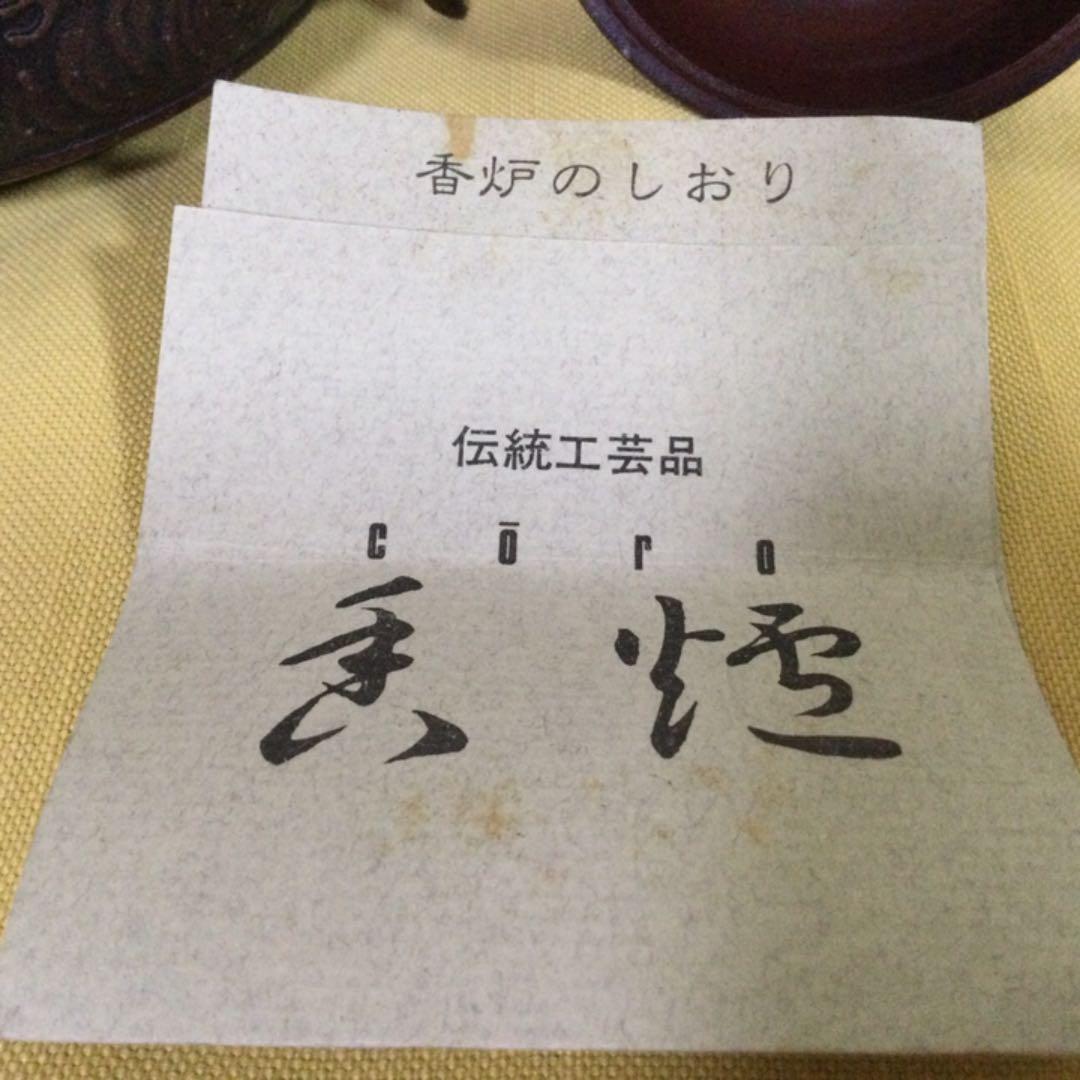 香炉のしおり
伝統工芸品
cōro
香爐